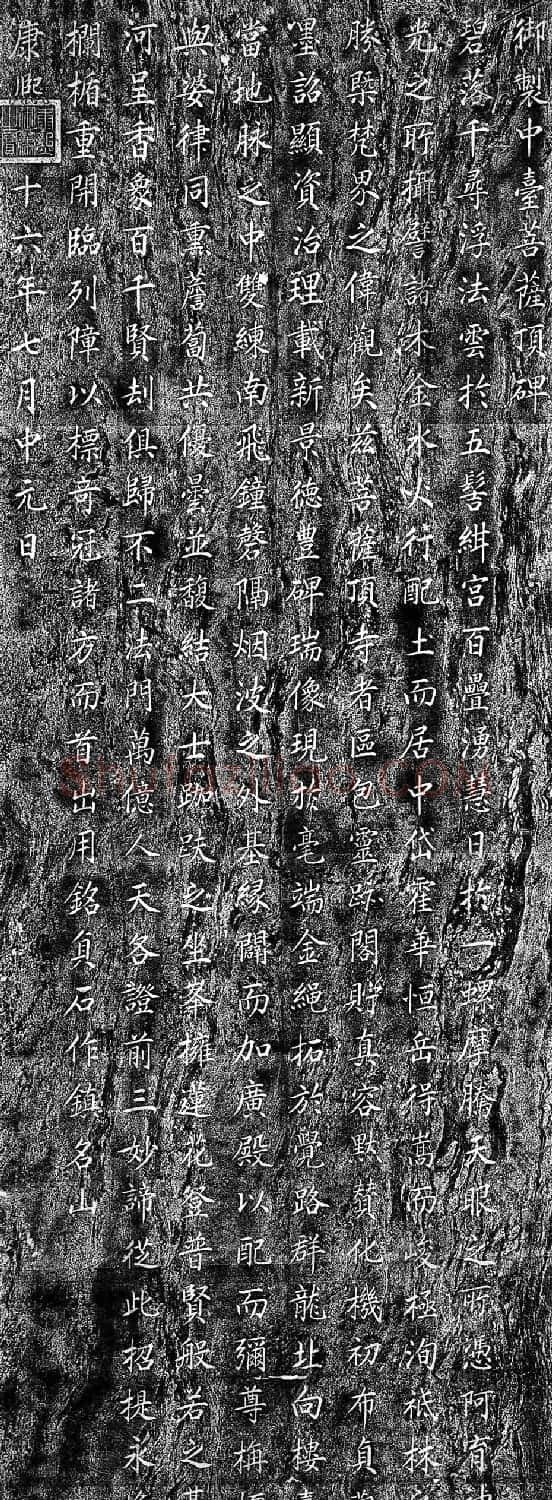 御製中臺菩薩頂碑
碧落千尋浮法雲於五髻紺宮百疊湧慧日於一螺摩騰天眼之所憑阿育
光之所攝譬諸木金水火行配土而居中岱霍華恒岳得嵩而峻極洵祇林
勝槩梵界之偉觀矣茲菩薩頂寺者區包靈跡閣貯真容默贊化機初布貞
墨詔顯資治理載新景德豐碑瑞像現於毫端金繩拓於覺路群龍北向樓
當地脉之中雙練南飛鐘磬隔烟波之外基緣闢而加廣殿以配而彌尊栴
與婆律同熏薝蔔共優曇並馥結大士跏趺之坐峯擁蓮花登普賢般若之
河呈香象百千賢刦俱歸不二法門萬億人天各證前三妙諦從此招提永
攔楯重開臨列障以標奇冠諸方而首出用銘貞石作鎮名山
康熙 十六年七月中元日
shufaziliao.COM